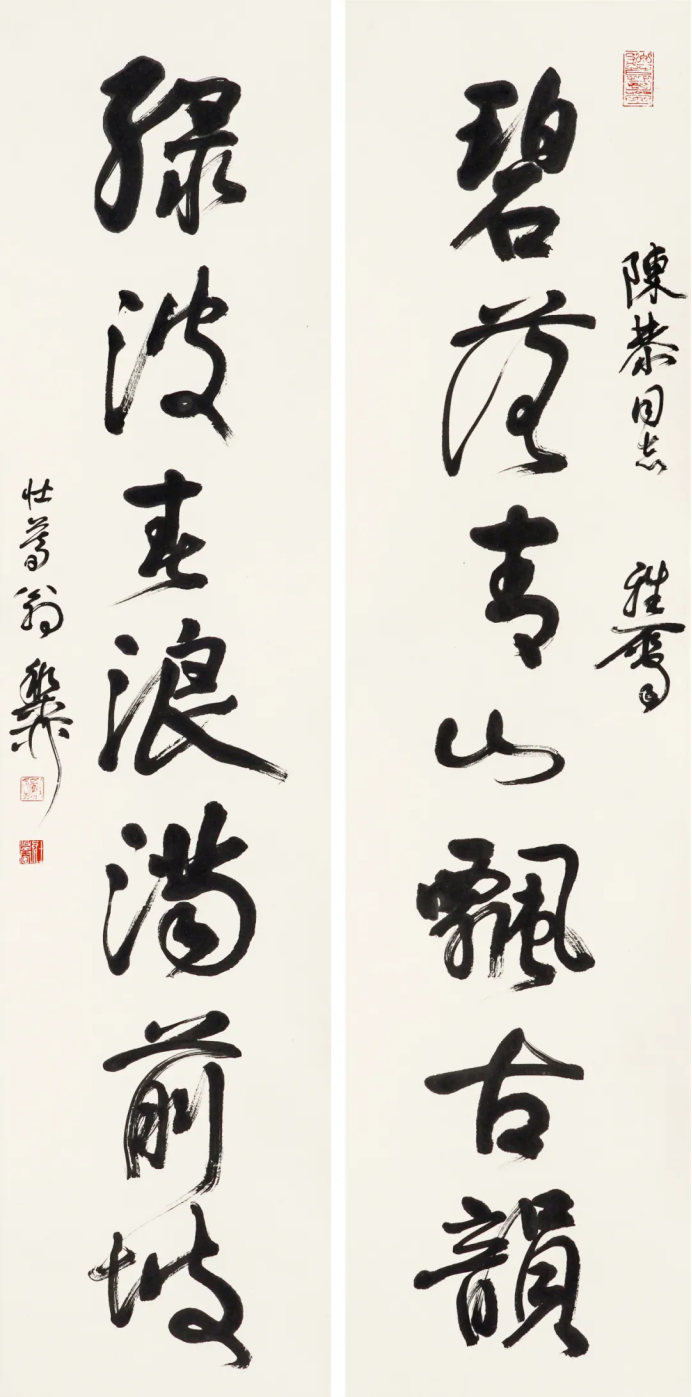 陳恭同志 雅屬
碧落青山飄古韻
綠波春浪滿前坡
壯暮翁稚柳